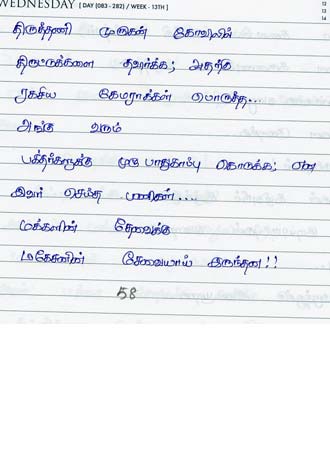 WEDNESDAY [ DAY (083 - 282) / WEEK - 13TH ]
12
13
14
திருத்தணி முருகன் கோவிலில்
திருட்டுக்களை தவிர்க்க; அதற்கு
ரகசிய கேமராக்கள் பொருத்த...
அங்கு வரும்
பக்தர்களுக்கு முழு பாதுகாப்பு கொடுக்க; என
இவர் செய்த பணிகள்....
மக்களின் தேவைக்கு
மகேசனின் சேவையாய் இருந்தன!!
58